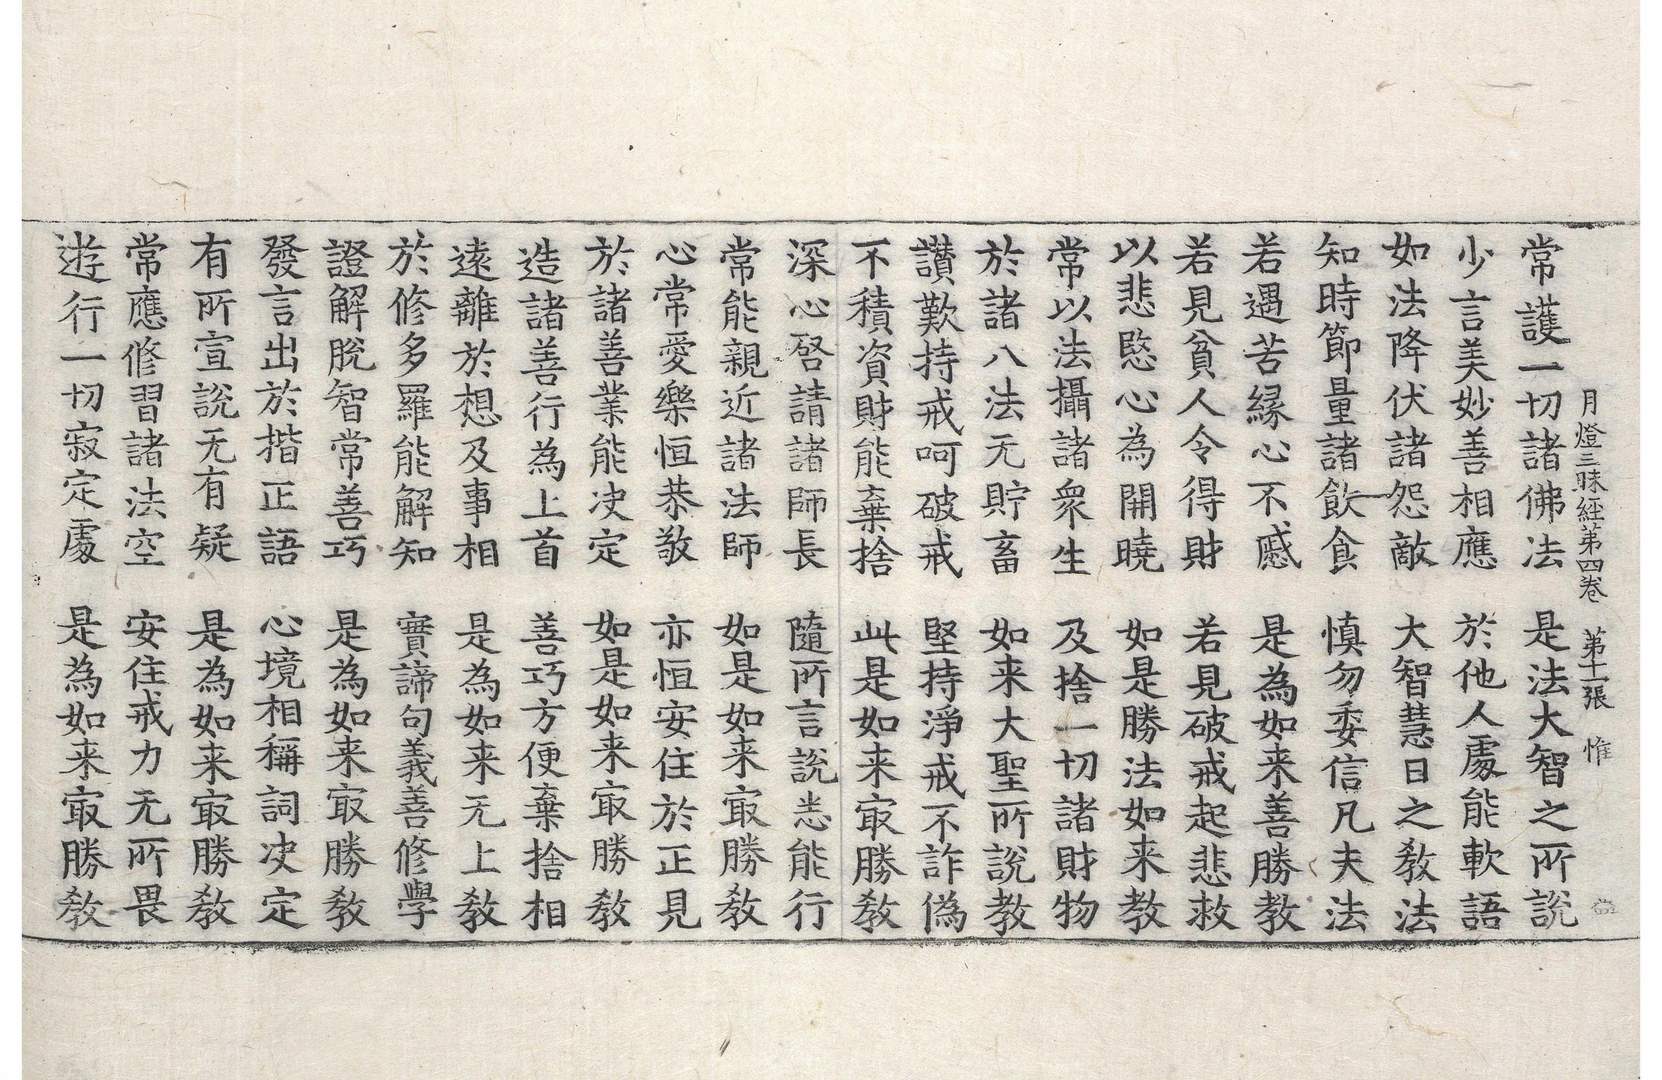 月燈三昧經第四卷　第十一張　惟
常護一切諸佛法　是法大智之所說
少言美妙善相應　於他人處能軟語
如法降伏諸怨敵　大智慧日之教法
知時節量諸飲食　慎勿委信凡夫法
若遇苦縁心不慼　是為如来善勝教
若見貧人令得財　若見破戒起悲救
以悲愍心為開曉　如是勝法如来教
常以法攝諸衆生　及捨一切諸財物
於諸八法无貯畜　如来大聖所說教
讃歎持戒呵破戒　堅持淨戒不詐偽
不積資財能棄捨　此是如来㝡勝教
深心啓請諸師長　隨所言說恙能行
常能親近諸法師　如是如来㝡勝教
心常愛樂恒恭敬　亦恒安住於正見
於諸善業能决定　如是如来㝡勝教
造諸善行為上首　善巧方便棄捨相
遠離於想及事相　是為如来无上教
於修多羅能解知　實諦句義善修學
證解脫智常善巧　是為如来㝡勝教
發言出於揩正語　心境相稱詞决定
有所宣說无有疑　是為如来㝡勝教
常應修習諸法空　安住戒力无所畏
遊行一切寂定處　是為如来㝡勝教